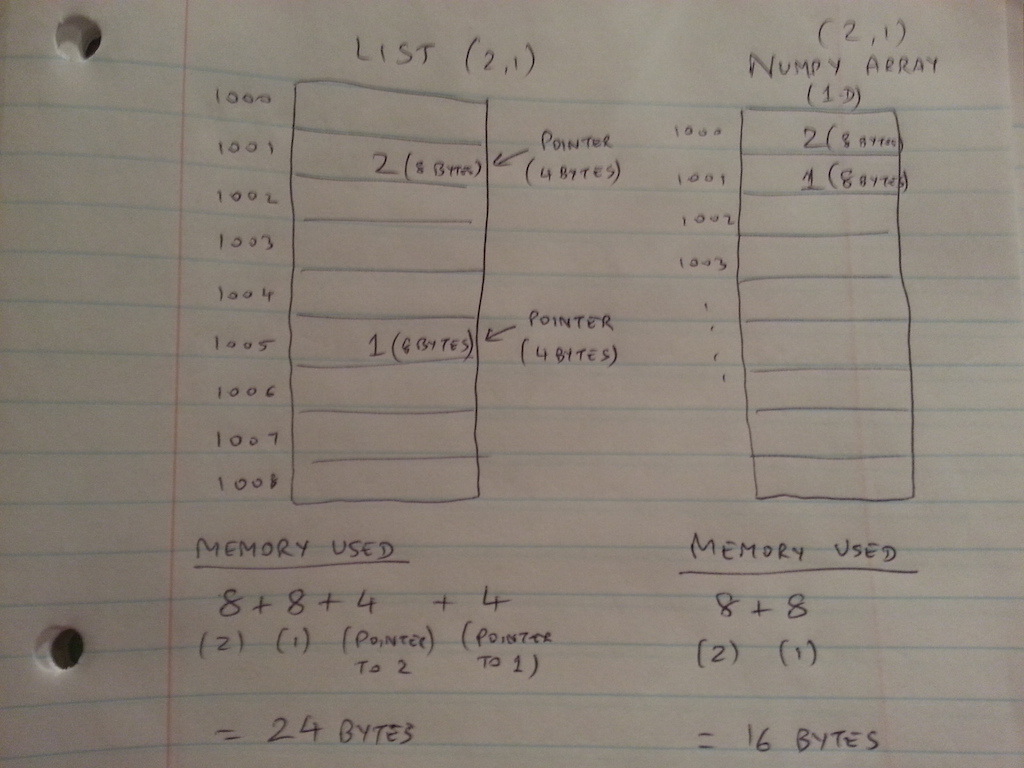 LIST (2,1)
1000
1001
2 (8 BYTES)
POINTER
(4 BYTES)
1002
1003
1004
1005
1 (8 BYTES)
POINTER
(4 BYTES)
1006
1007
1008
MEMORY USED
8 + 8 + 4 + 4
(2) (1) (POINTER TO 2) (POINTER TO 1)
= 24 BYTES
(2,1)
NUMPY ARRAY
(1D)
1000
2 (8 BYTES)
1001
1 (8 BYTES)
1002
1003
MEMORY USED
8 + 8
(2) (1)
= 16 BYTES